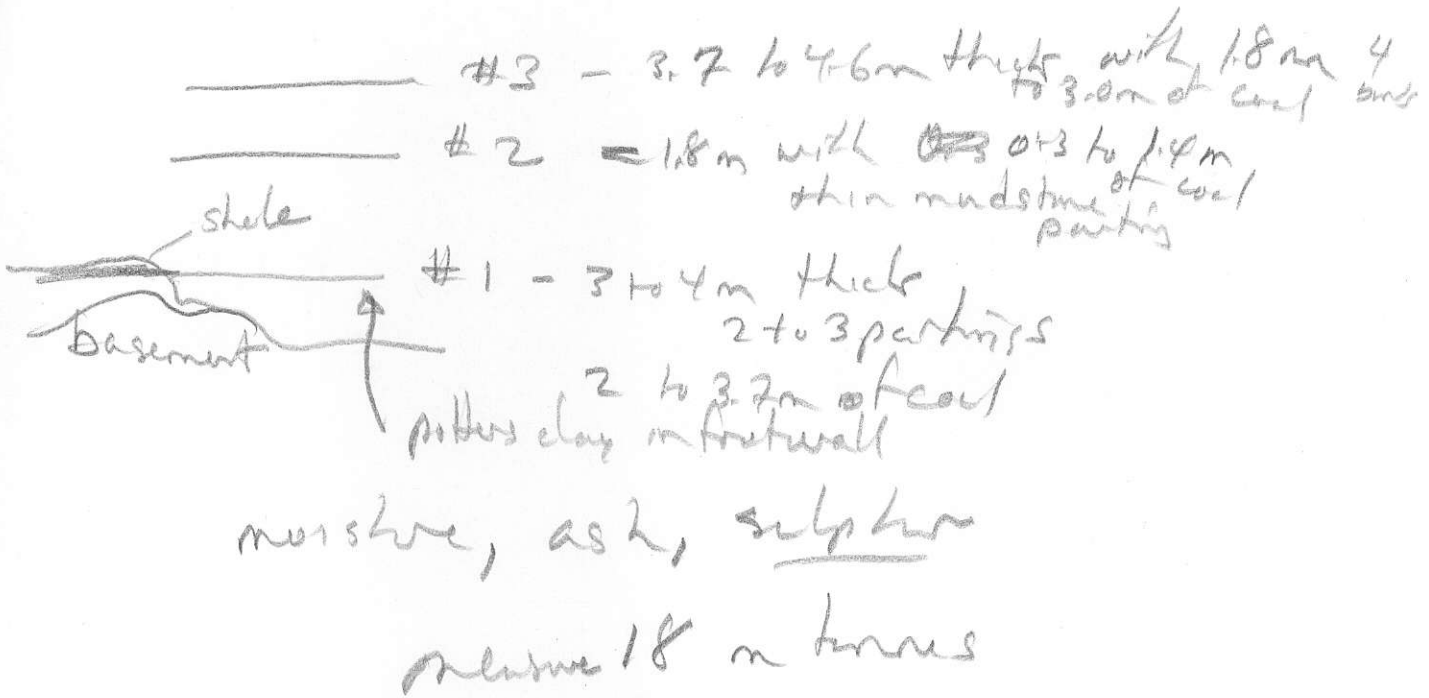 #3 - 3.7 to 4.6m thick with 1.8m 4
to 3.0m of coal
#2 - 1.8m with 0.3 to 1.4m
of coal
thin mudstone
parting
shale
#1 - 3 to 4m thick
2 to 3 partings
basement
2 to 3.7m of coal
potters clay in footwall
moisture, ash, sulphur
18 m tonnes